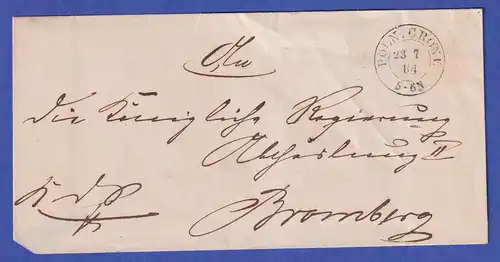 POLN. CRONE
23 7
64
5-6N
An
die Königliche Regierung
Abtheilung II
Bromberg